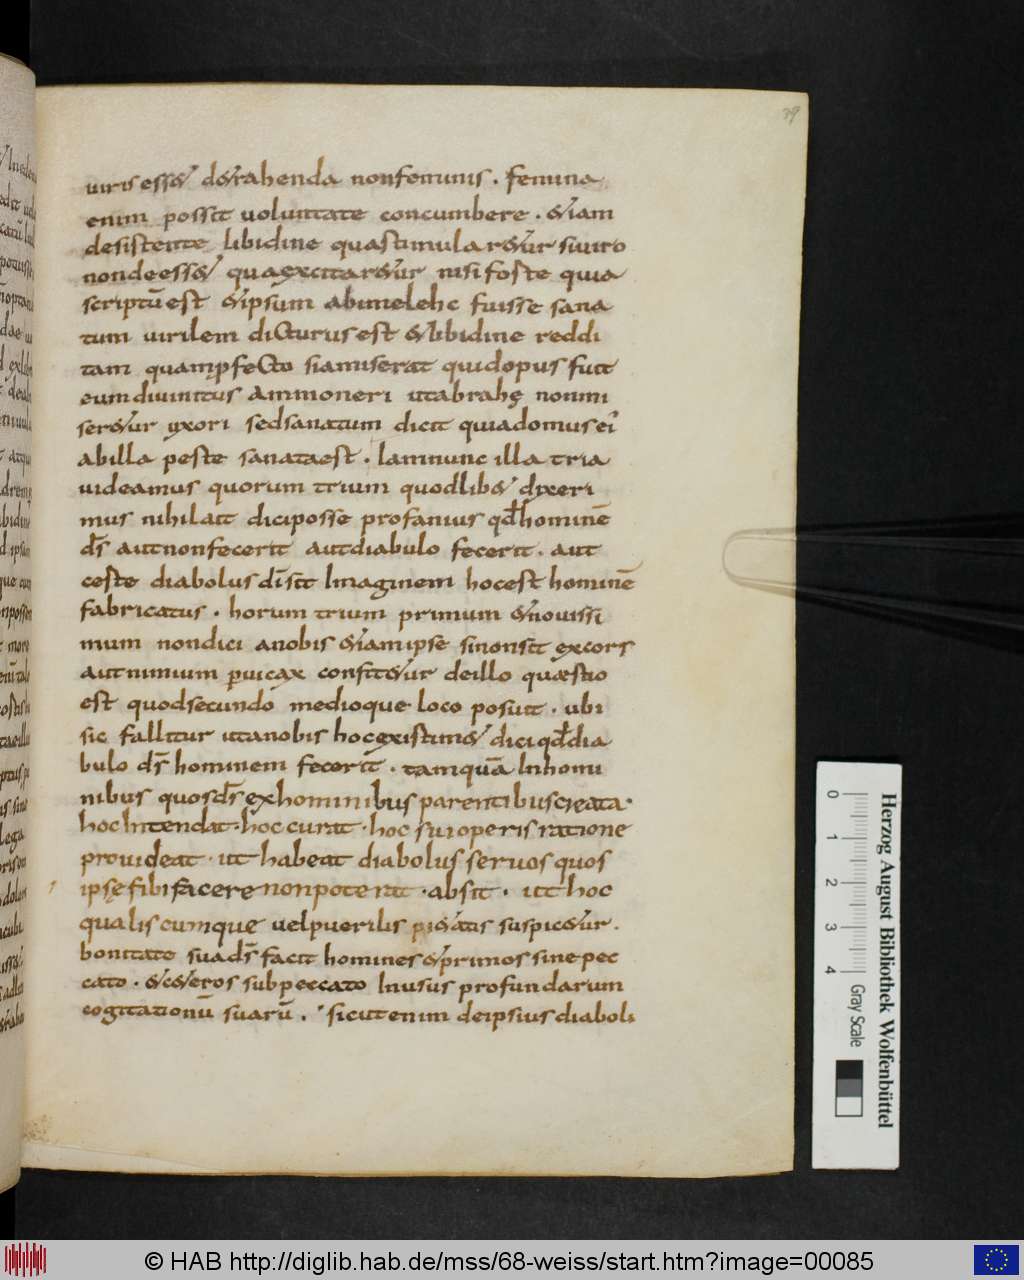 39
uiris ess& d&rahenda non feminis. femina
enim possit uoluntate concumbere. &iam
desistente libidine qua stimular&ur si uiro
non deess& qua excitar&ur nisi foste quia
scriptū est &ipsum abimelehc fuisse sana
tum uirilem dicturus est & libidine reddi
tam quam pfecto si amiserat quid opus fuit
eum diuinitus ammoneri ut abrahę non mi
ser&ur uxori sed sanatum dicit quia domus ei'
ab illa peste sanata est. Iam nunc illa tria
uideamus quorum trium quodlib& dixeri
mus nihil ait dici posse profanius qđ hominē
dš aut non fecerit aut diabulo fecerit. aut
ceste diabolus dī sit Imaginem hoc est hominē
fabricatus. horum trium primum &nouissi
mum non dici a nobis &iam ipse si non sit excors
aut nimium puicax confit&ur de illo quæstio
est quod secundo medioque loco posuit. ubi
sic fallitur ut a nobis hoc existim& dici qđ dia
bulo dš hominem fecerit. tamquā In homi
nibus quos dš ex hominibus parentibus creata.
hoc Intendat. hoc curat. hoc sui operis ratione
prouideat. ut habeat diabolus seruos quos
ipsę sibi facere non poterat. absit. ut hoc
qualiscumque uel puerilis pi&atis suspic&ur.
bonitate sua dš facit homines &primos sine pec
cato. &c&eros sub peccato In usus profundarum
cogitationū suarū. sicut enim de ipsius diaboli
0 1 2 3 4
Gray Scale
Herzog August Bibliothek Wolfenbüttel
© HAB http://diglib.hab.de/mss/68-weiss/start.htm?image=00085